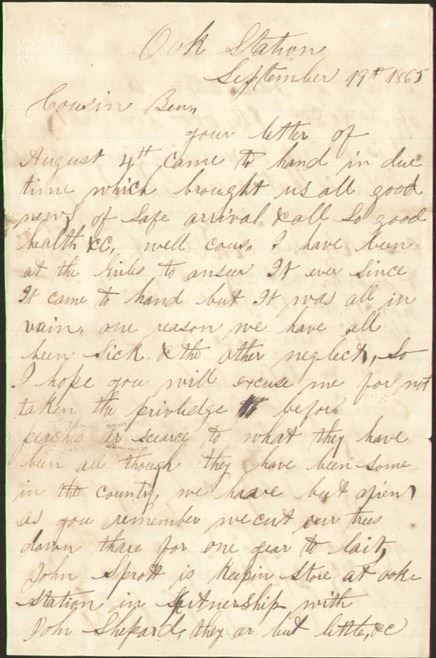 Ook Station
September 19th 1865
Cousin Ben,
your letter of
August 4th came to hand in due
time which brought us all good
news of safe arrival & all so good
health &C, well cous. I have been
at the Girles to anser It ever since
It came to hand but It was all in
vain, one reason we have all
bun sick & the other neglect, so
I hope you will excuse me for not
taken the privledge before
peaches ar scearce to what they have
bun all though they have been some
in the county, we have but a few
as you remember we cut our trees
down thare for one year to lait,
John Sprott is keepin store at ooke
Station in partnership with
John Shepard, they ar but little, &C